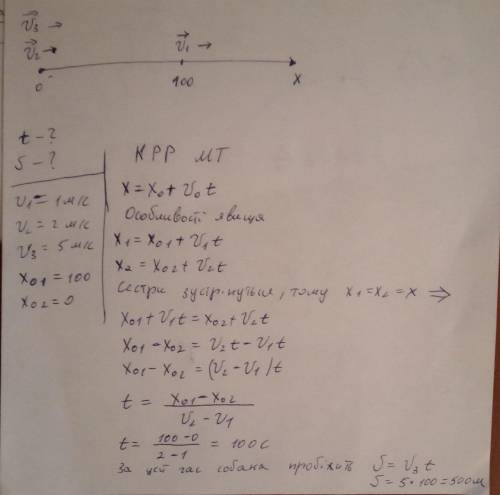 v⃗3 →
v⃗2 → v⃗1 →
0 100 x
t - ?
S - ?
v1 = 1 м/с
v2 = 2 м/с
v3 = 5 м/с
x01 = 100
x02 = 0
КРР МТ
x = x0 + v0 t
Особливості явища
x1 = x01 + v1 t
x2 = x02 + v2 t
Сестри зустрінуться, тому x1 = x2 = x ⇒
x01 + v1 t = x02 + v2 t
x01 - x02 = v2 t - v1 t
x01 - x02 = (v2 - v1) t
t = x01 - x02 / v2 - v1
t = 100 - 0 / 2 - 1 = 100 с
За цей час собака пробіжить S = v3 t
S = 5 * 100 = 500 м